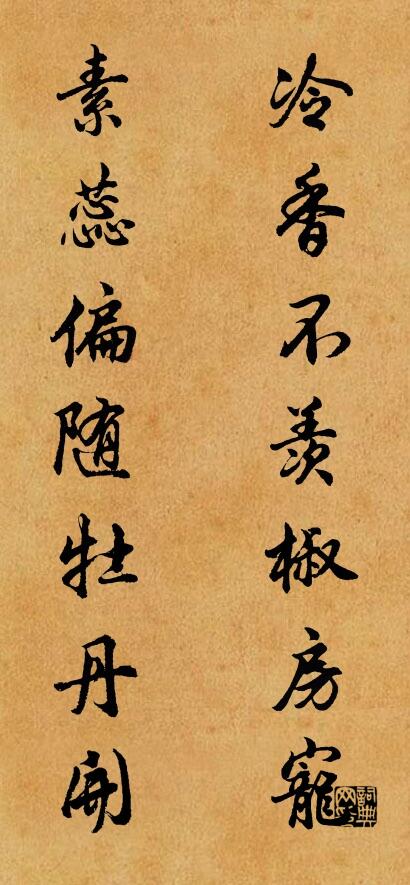 冷香不羡椒房寵
素蕊偏随牡丹開
詞典網